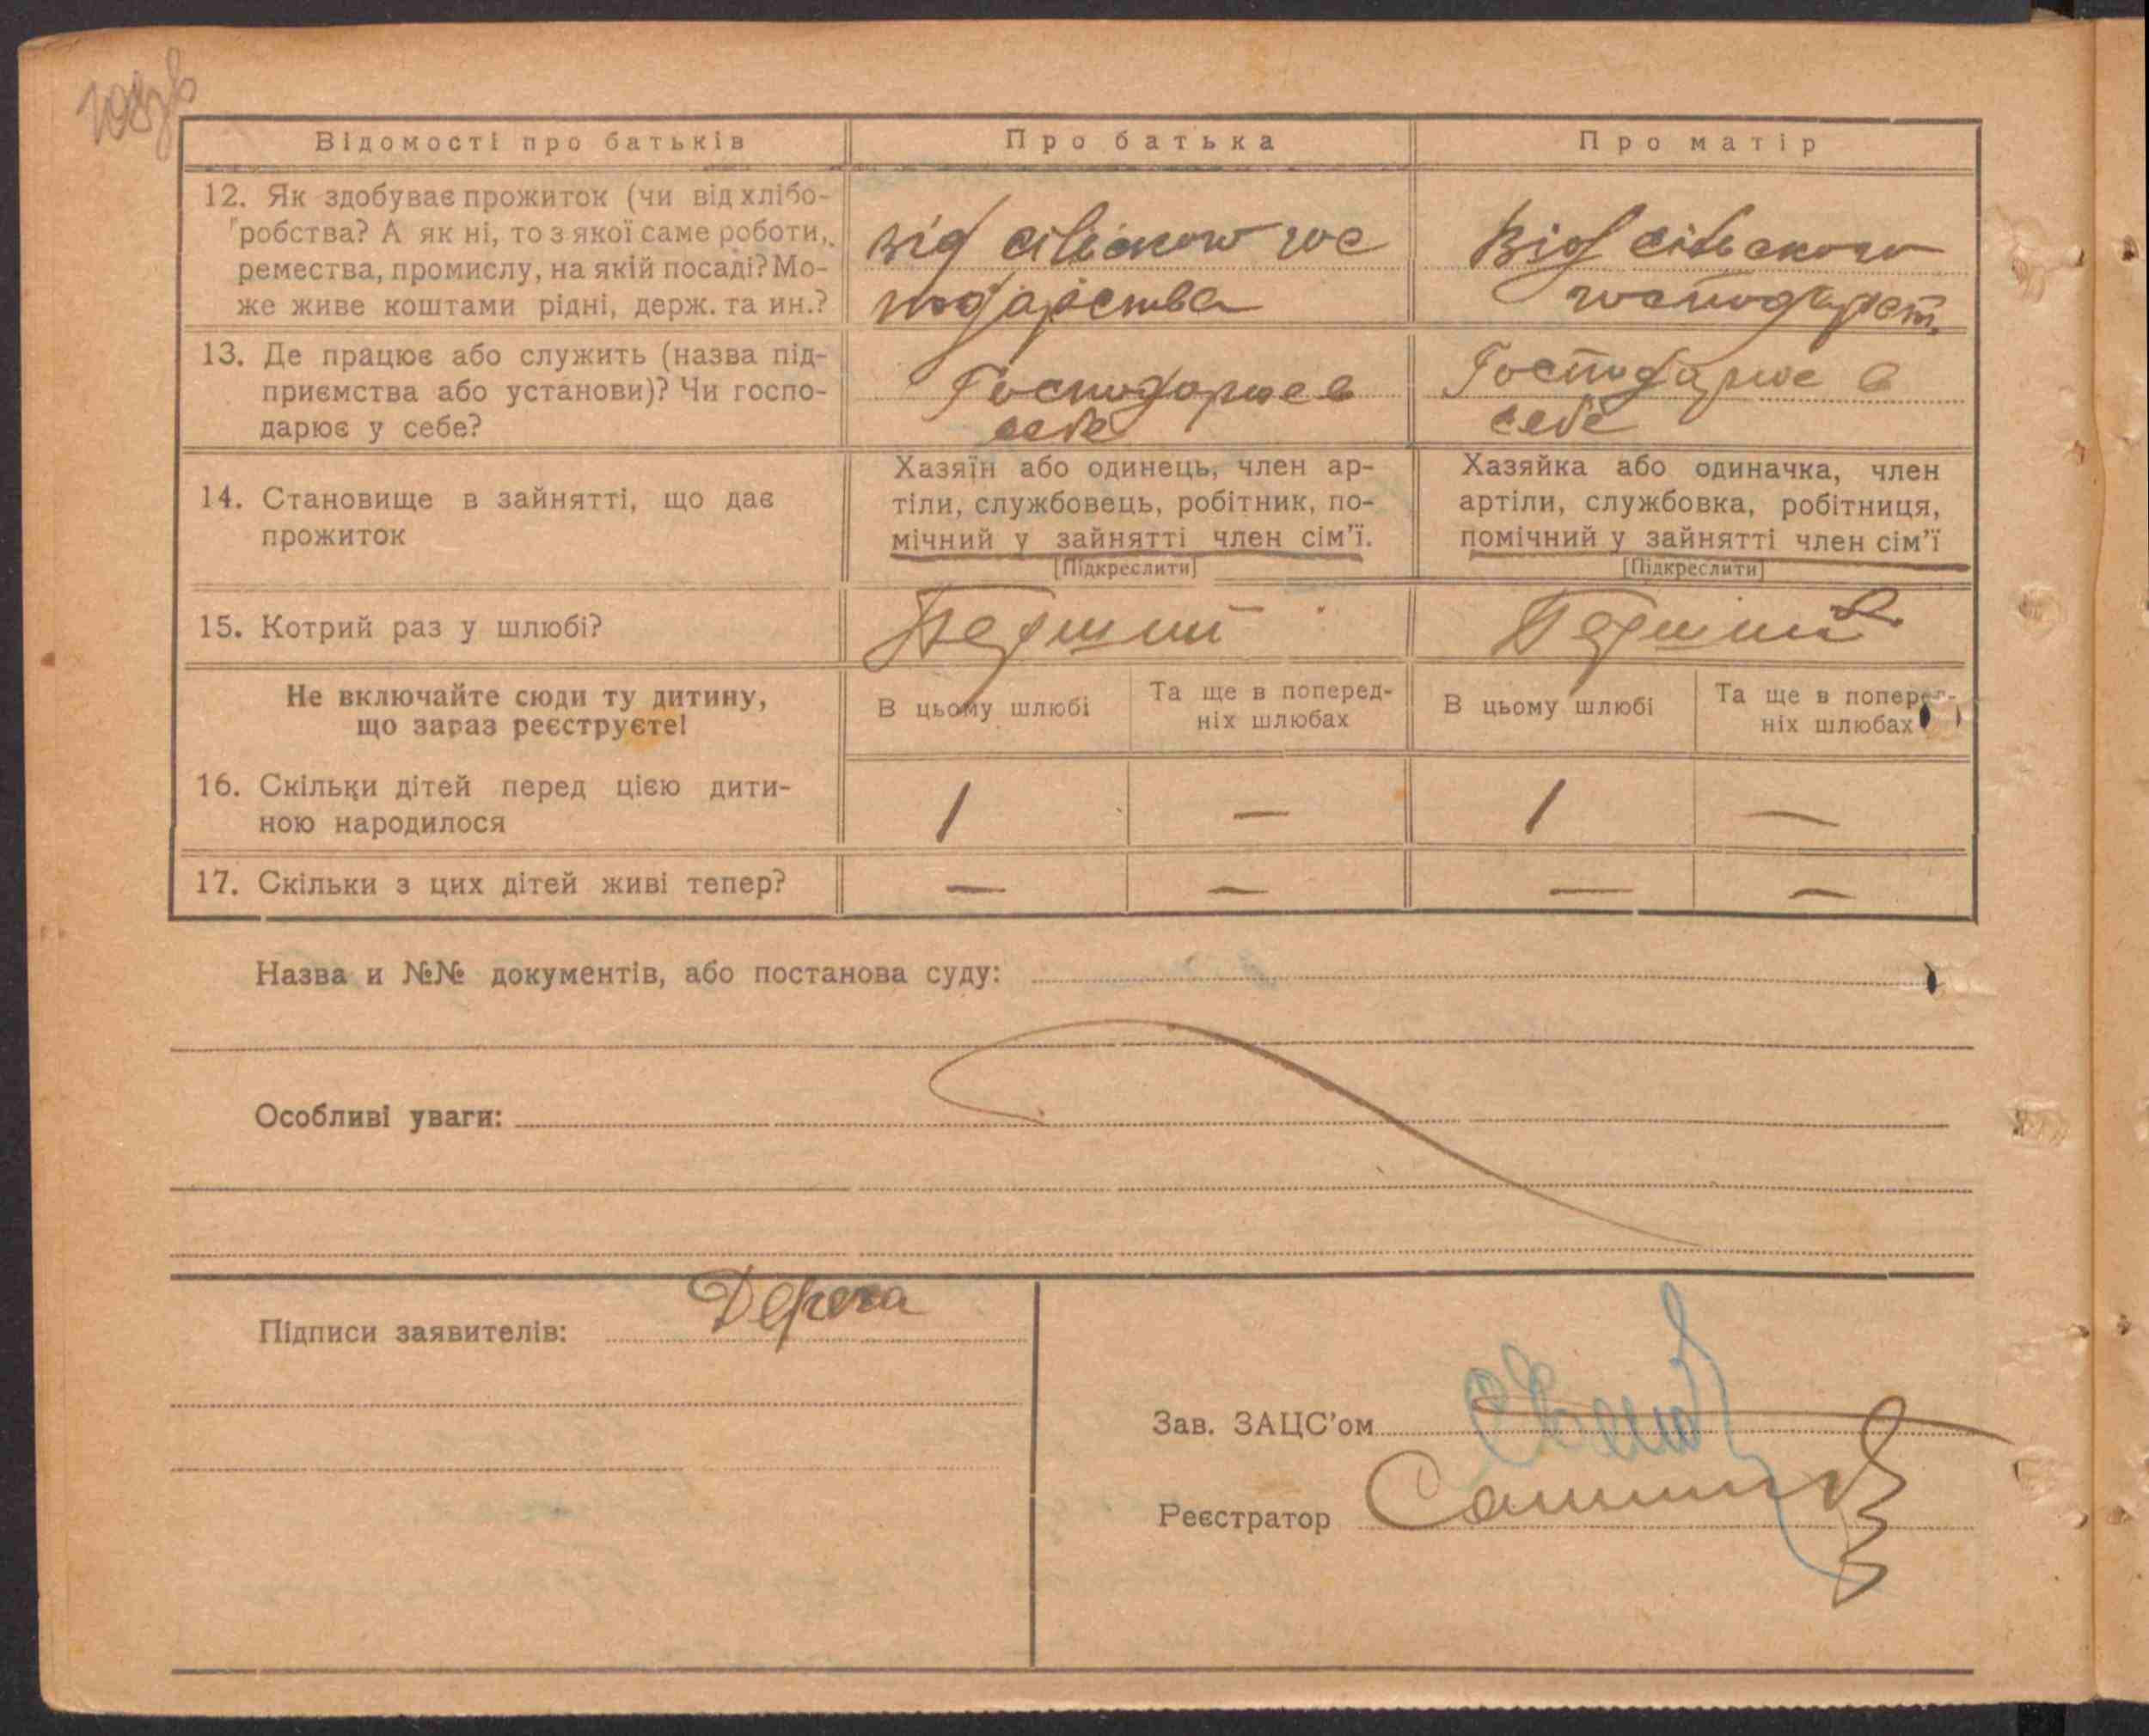 Відомості про батьків
Про батька
Про матір
12. Як здобуває прожиток (чи від хлібо-
робства? А як ні, то з якої саме роботи,
ремества, промислу, на якій посаді? Мо-
же живе коштами рідні, держ. та ин.?
від сільського гос
подарства
Від сільского
господарст.
13. Де працює або служить (назва під-
приємства або установи)? Чи госпо-
дарює у себе?
Господарює в
себе
Господарює в
себе
14. Становище в зайнятті, що дає
прожиток
Хазяїн або одинець, член ар-
тіли, службовець, робітник, по-
мічний у зайнятті член сім'ї.
[Підкреслити]
Хазяйка або одиначка, член
артіли, службовка, робітниця,
помічний у зайнятті член сім'ї
[Підкреслити]
15. Котрий раз у шлюбі?
Перший
Перший
Не включайте сюди ту дитину,
що зараз реєструєте!
В цьому шлюбі
Та ще в поперед-
ніх шлюбах
В цьому шлюбі
Та ще в поперед-
ніх шлюбах
16. Скільки дітей перед цією дити-
ною народилося
1
—
1
—
17. Скільки з цих дітей живі тепер?
—
—
—
—
Назва и №№ документів, або постанова суду:
Особливі уваги:
Підписи заявителів:
Зав. ЗАЦС'ом
Реєстратор